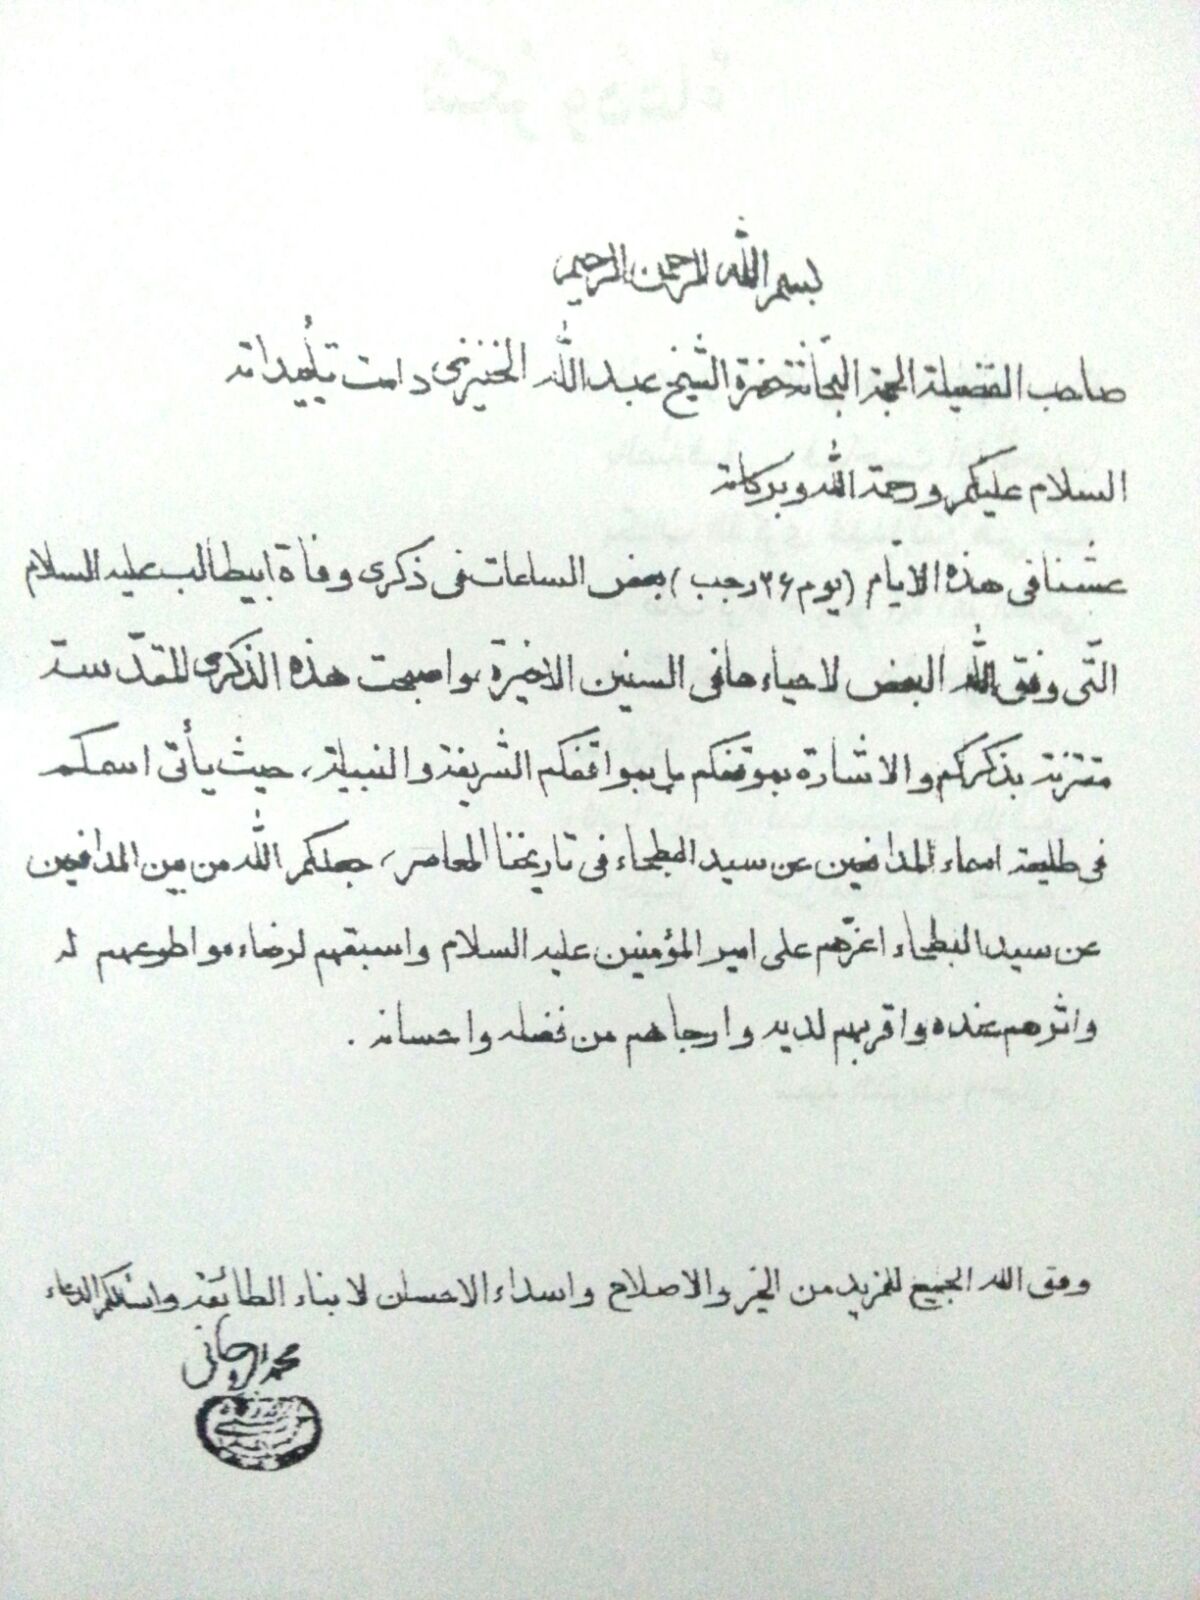 بسم الله الرحمن الرحيم
صاحب الفضيلة الحجة البحاثة حضرة الشيخ عبد الله الخنيزى دامت تأييداته
السلام عليكم ورحمة الله وبركاته
عشنا فى هذه الأيّام (يوم ٢۶ رجب) بعض الساعات فى ذكرى وفاة ابيطالب عليه السلام
الّتى وفق الله البعض لاحياءها فى السنين الاخيرة، واصبحت هذه الذكرى المقدّسة
مقترنة بذكركم والاشارة بموقفكم بل بمواقفكم الشريفة والنبيلة، حيث يأتى اسمكم
فى طليعة اسماء المدافعين عن سيد البطحاء فى تاريخنا المعاصر، جعلكم الله من بين المدافعين
عن سيد البطحاء اعزّهم على امير المؤمنين عليه السلام واسبقهم لرضاه واطوعهم له
واثرهم عنده واقربهم لديه وارجاهم من فضله واحسانه .
وفق الله الجميع للمزيد من الخير والاصلاح واسداء الاحسان لابناء الطائفة واسئلكم الدعاء
محمد الروحانى